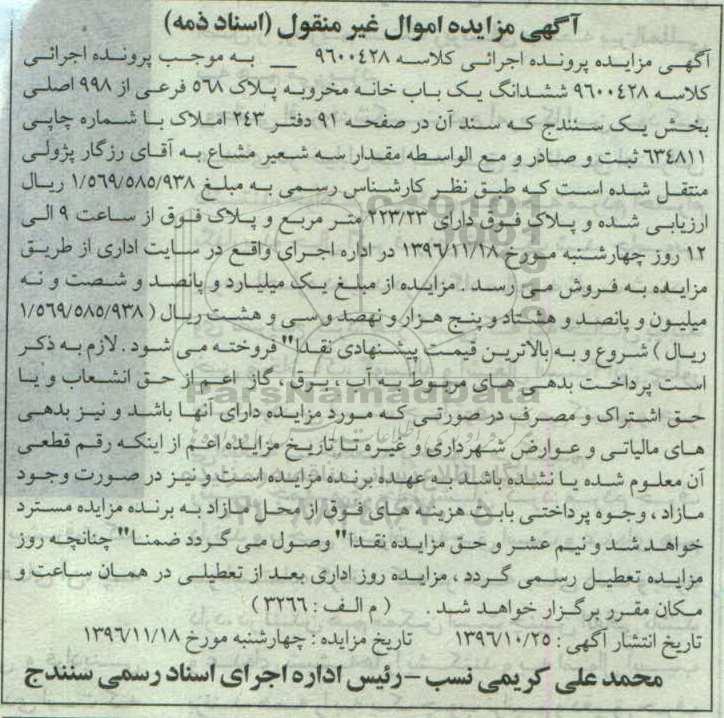 آگهی مزایده اموال غیر منقول (اسناد ذمه)
آگهی مزایده پرونده اجرائی کلاسه ۹۶۰۰۴۲۸ __ به موجب پرونده اجرائی
کلاسه ۹۶۰۰۴۲۸ ششدانگ یک باب خانه مخروبه پلاک ۵۶۸ فرعی از ۹۹۸ اصلی
بخش یک سنندج که سند آن در صفحه ۹۱ دفتر ۲۴۳ املاک با شماره چاپی
۶۳۴۸۱۱ ثبت و صادر و مع الواسطه مقدار سه شعیر مشاع به آقای رزگار پژولی
منتقل شده است که طبق نظر کارشناس رسمی به مبلغ ۱/۵۶۹/۵۸۵/۹۳۸ ریال
ارزیابی شده و پلاک فوق دارای ۲۲۳/۲۳ متر مربع و پلاک فوق از ساعت ۹ الی
۱۲ روز چهارشنبه مورخ ۱۳۹۶/۱۱/۱۸ در اداره اجرای واقع در سایت اداری از طریق
مزایده به فروش می رسد . مزایده از مبلغ یک میلیارد و پانصد و شصت و نه
میلیون و پانصد و هشتاد و پنج هزار و نهصد و سی و هشت ریال ( ۱/۵۶۹/۵۸۵/۹۳۸
ریال ) شروع و به بالاترین قیمت پیشنهادی نقدا" فروخته می شود . لازم به ذکر
است پرداخت بدهی های مربوط به آب ، برق ، گاز اعم از حق انشعاب و یا
حق اشتراک و مصرف در صورتی که مورد مزایده دارای آنها باشد و نیز بدهی
های مالیاتی و عوارض شهرداری و غیره تا تاریخ مزایده اعم از اینکه رقم قطعی
آن معلوم شده یا نشده باشد به عهده برنده مزایده است و نیز در صورت وجود
مازاد ، وجوه پرداختی بابت هزینه های فوق از محل مازاد به برنده مزایده مسترد
خواهد شد و نیم عشر و حق مزایده نقدا" وصول می گردد ضمنا" چنانچه روز
مزایده تعطیل رسمی گردد ، مزایده روز اداری بعد از تعطیلی در همان ساعت و
مکان مقرر برگزار خواهد شد . ( م الف : ۳۲۶۶ )
تاریخ انتشار آگهی : ۱۳۹۶/۱۰/۲۵ تاریخ مزایده : چهارشنبه مورخ ۱۳۹۶/۱۱/۱۸
محمد علی کریمی نسب - رئیس اداره اجرای اسناد رسمی سنندج
ParsNamadData